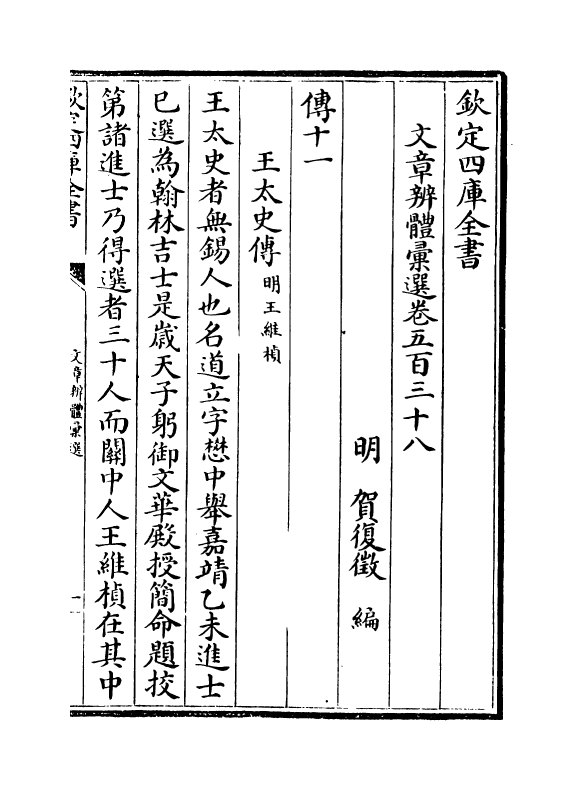 欽定四庫全書
文章辨體彙選卷五百三十八
明 賀復徵 編
傳十一
王太史傳 明王維楨
王太史者無錫人也名道立字懋中舉嘉靖乙未進士
已選為翰林吉士是歲天子躬御文華殿授簡命題挍
第諸進士乃得選者三十人而關中人王維楨在其中
欽定四庫全書
文章辨體彙選
一